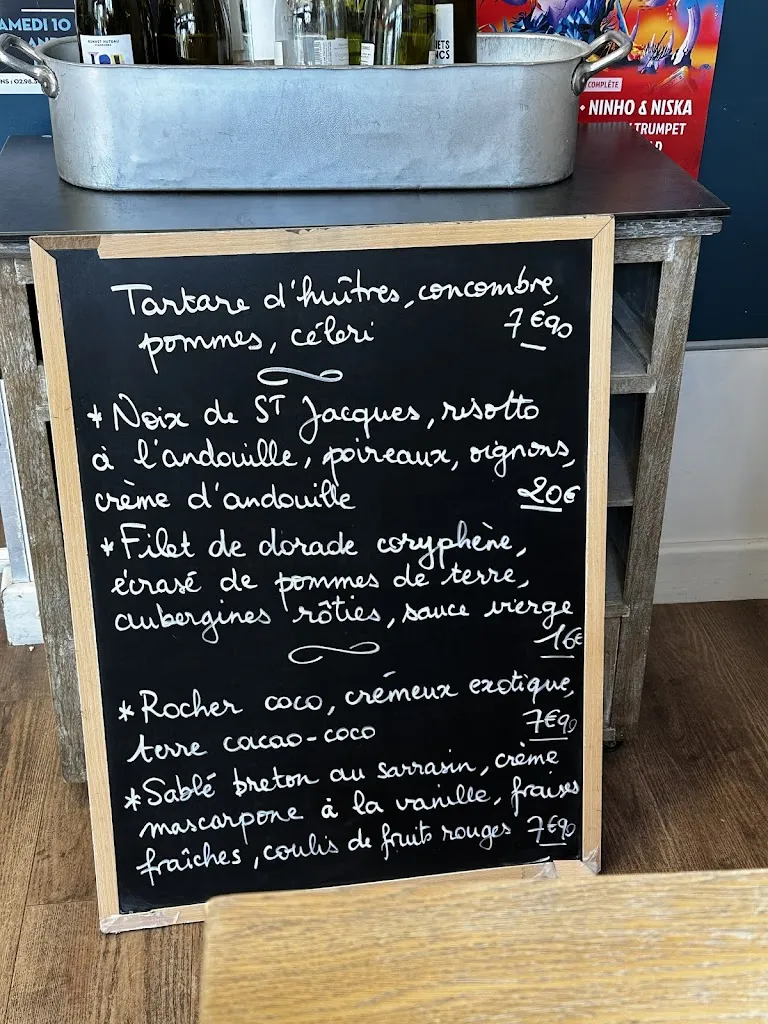 AMEDI 10
COMPLÈTE
• NINHO & NISKA
TRUMPET
Tartare d'huîtres, concombre,
pommes, céleri 7€90
* Noix de ST Jacques, risotto
à l'andouille, poireaux, oignons,
crème d'andouille 20€
* Filet de dorade coryphène,
écrasé de pommes de terre,
aubergines rôties, sauce vierge
16€
* Rocher coco, crémeux exotique,
terre cacao-coco 7€90
* Sablé breton au sarrasin, crème
mascarpone à la vanille, fraises
fraîches, coulis de fruits rouges 7€90